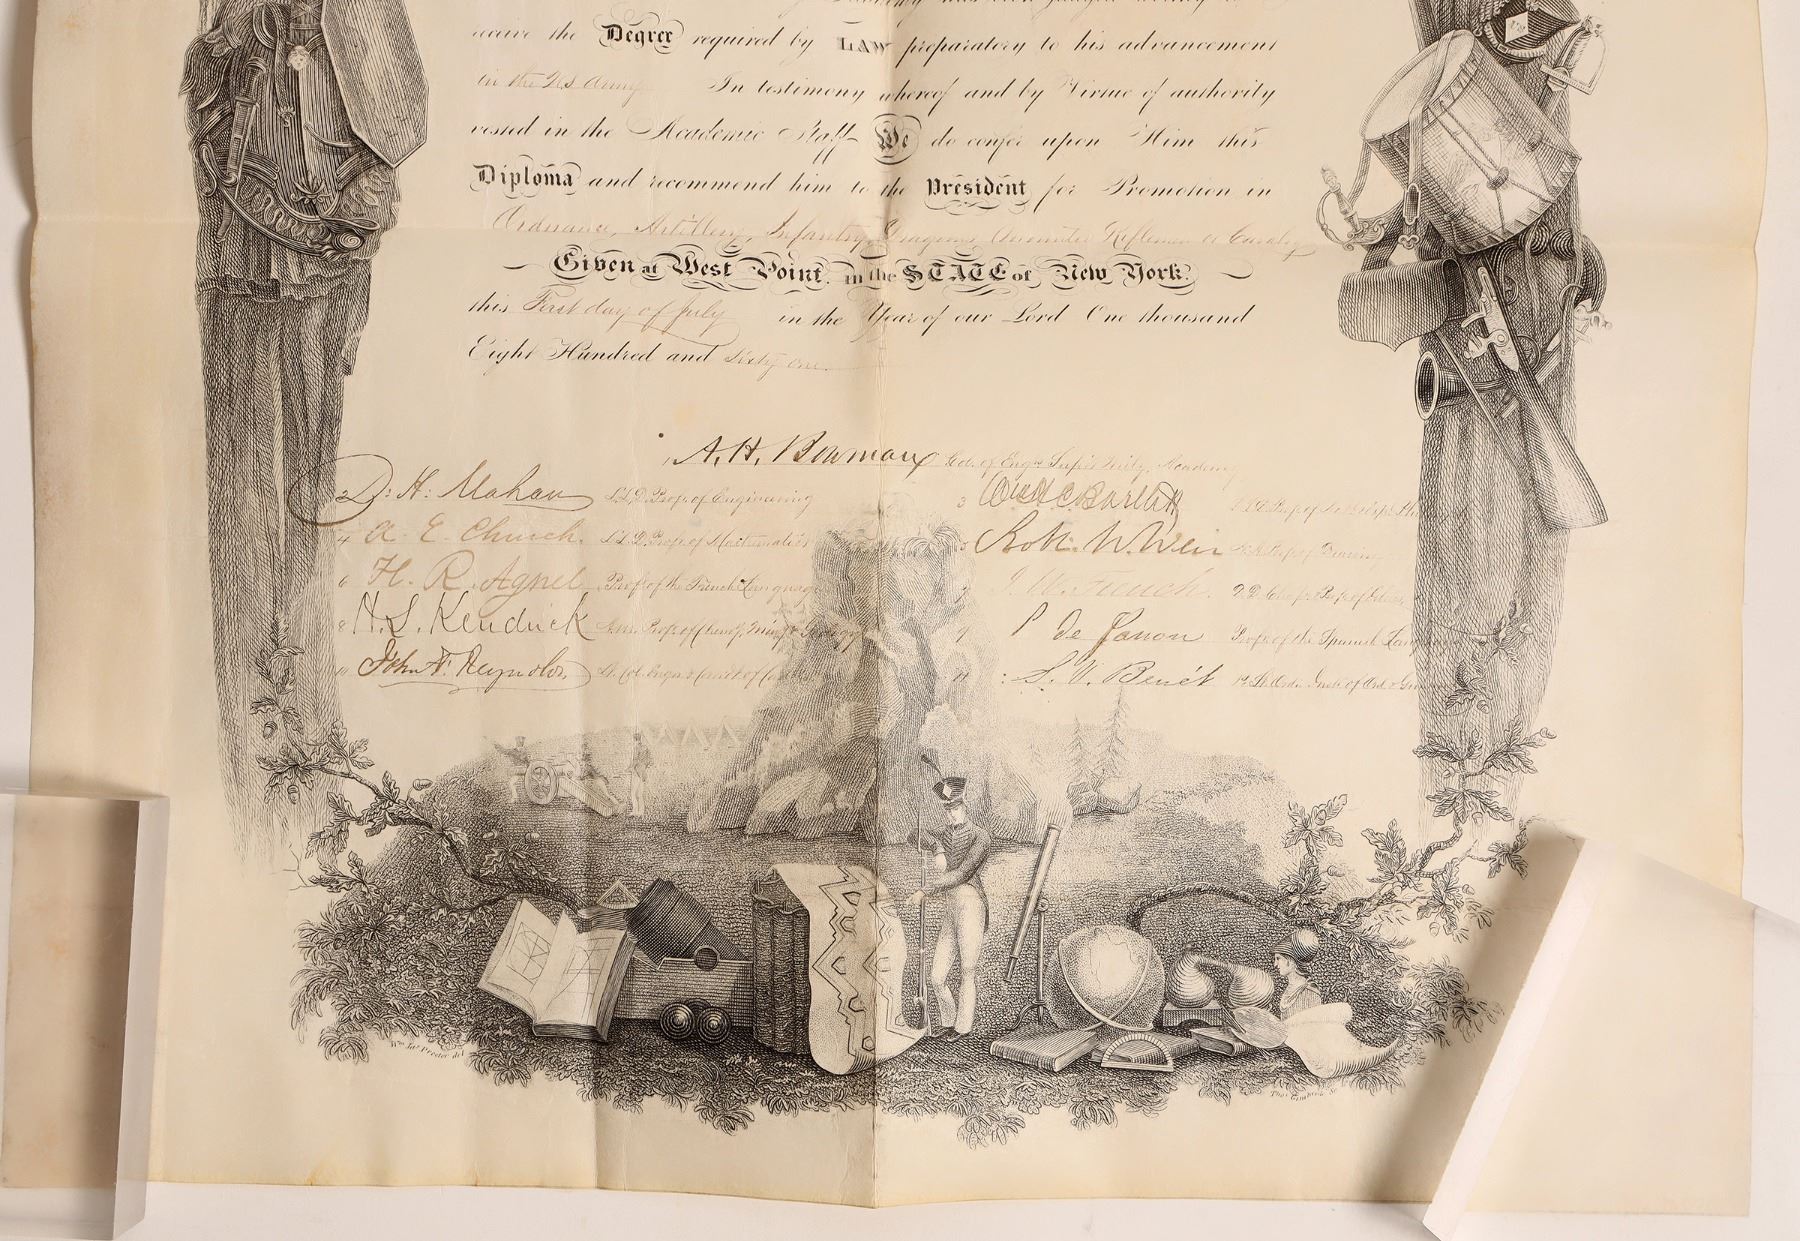 receive the Degree required by LAW preparatory to his advancement
in the US Army In testimony whereof and by Virtue of authority
vested in the Academic Staff We do confer upon Him this
Diploma and recommend him to the President for Promotion in
Ordnance, Artillery, Infantry, Dragoons, Mounted Riflemen or Cavalry
Given at West Point, in the STATE of New York.
this First day of July in the Year of our Lord One thousand
Eight Hundred and Sixty one.
1, A. H. Bowman Col. of Engrs Supt. Mily. Academy
2 D. H. Mahan L.L.D. Prof. of Engineering
3 Wm. H. C. Bartlett
4 A. E. Church. L.L.D. Prof. of Mathematics
5 Robt. W. Weir N.A. Prof. of Drawing
6 H. R. Agnel Prof. of the French Language
7 J. W. French. D.D. Chap. & Prof. of
8 H. L. Kendrick A.M. Prof. of Chemy, Min. & Geology
9 P. de Janon Prof. of the Spanish
10 John F. Reynolds,
11 S. V. Benét 1st Lt. Ord. Instr. of Ord. &
Wm. Jas. Proctor del
Thos. Gimbrede Sc